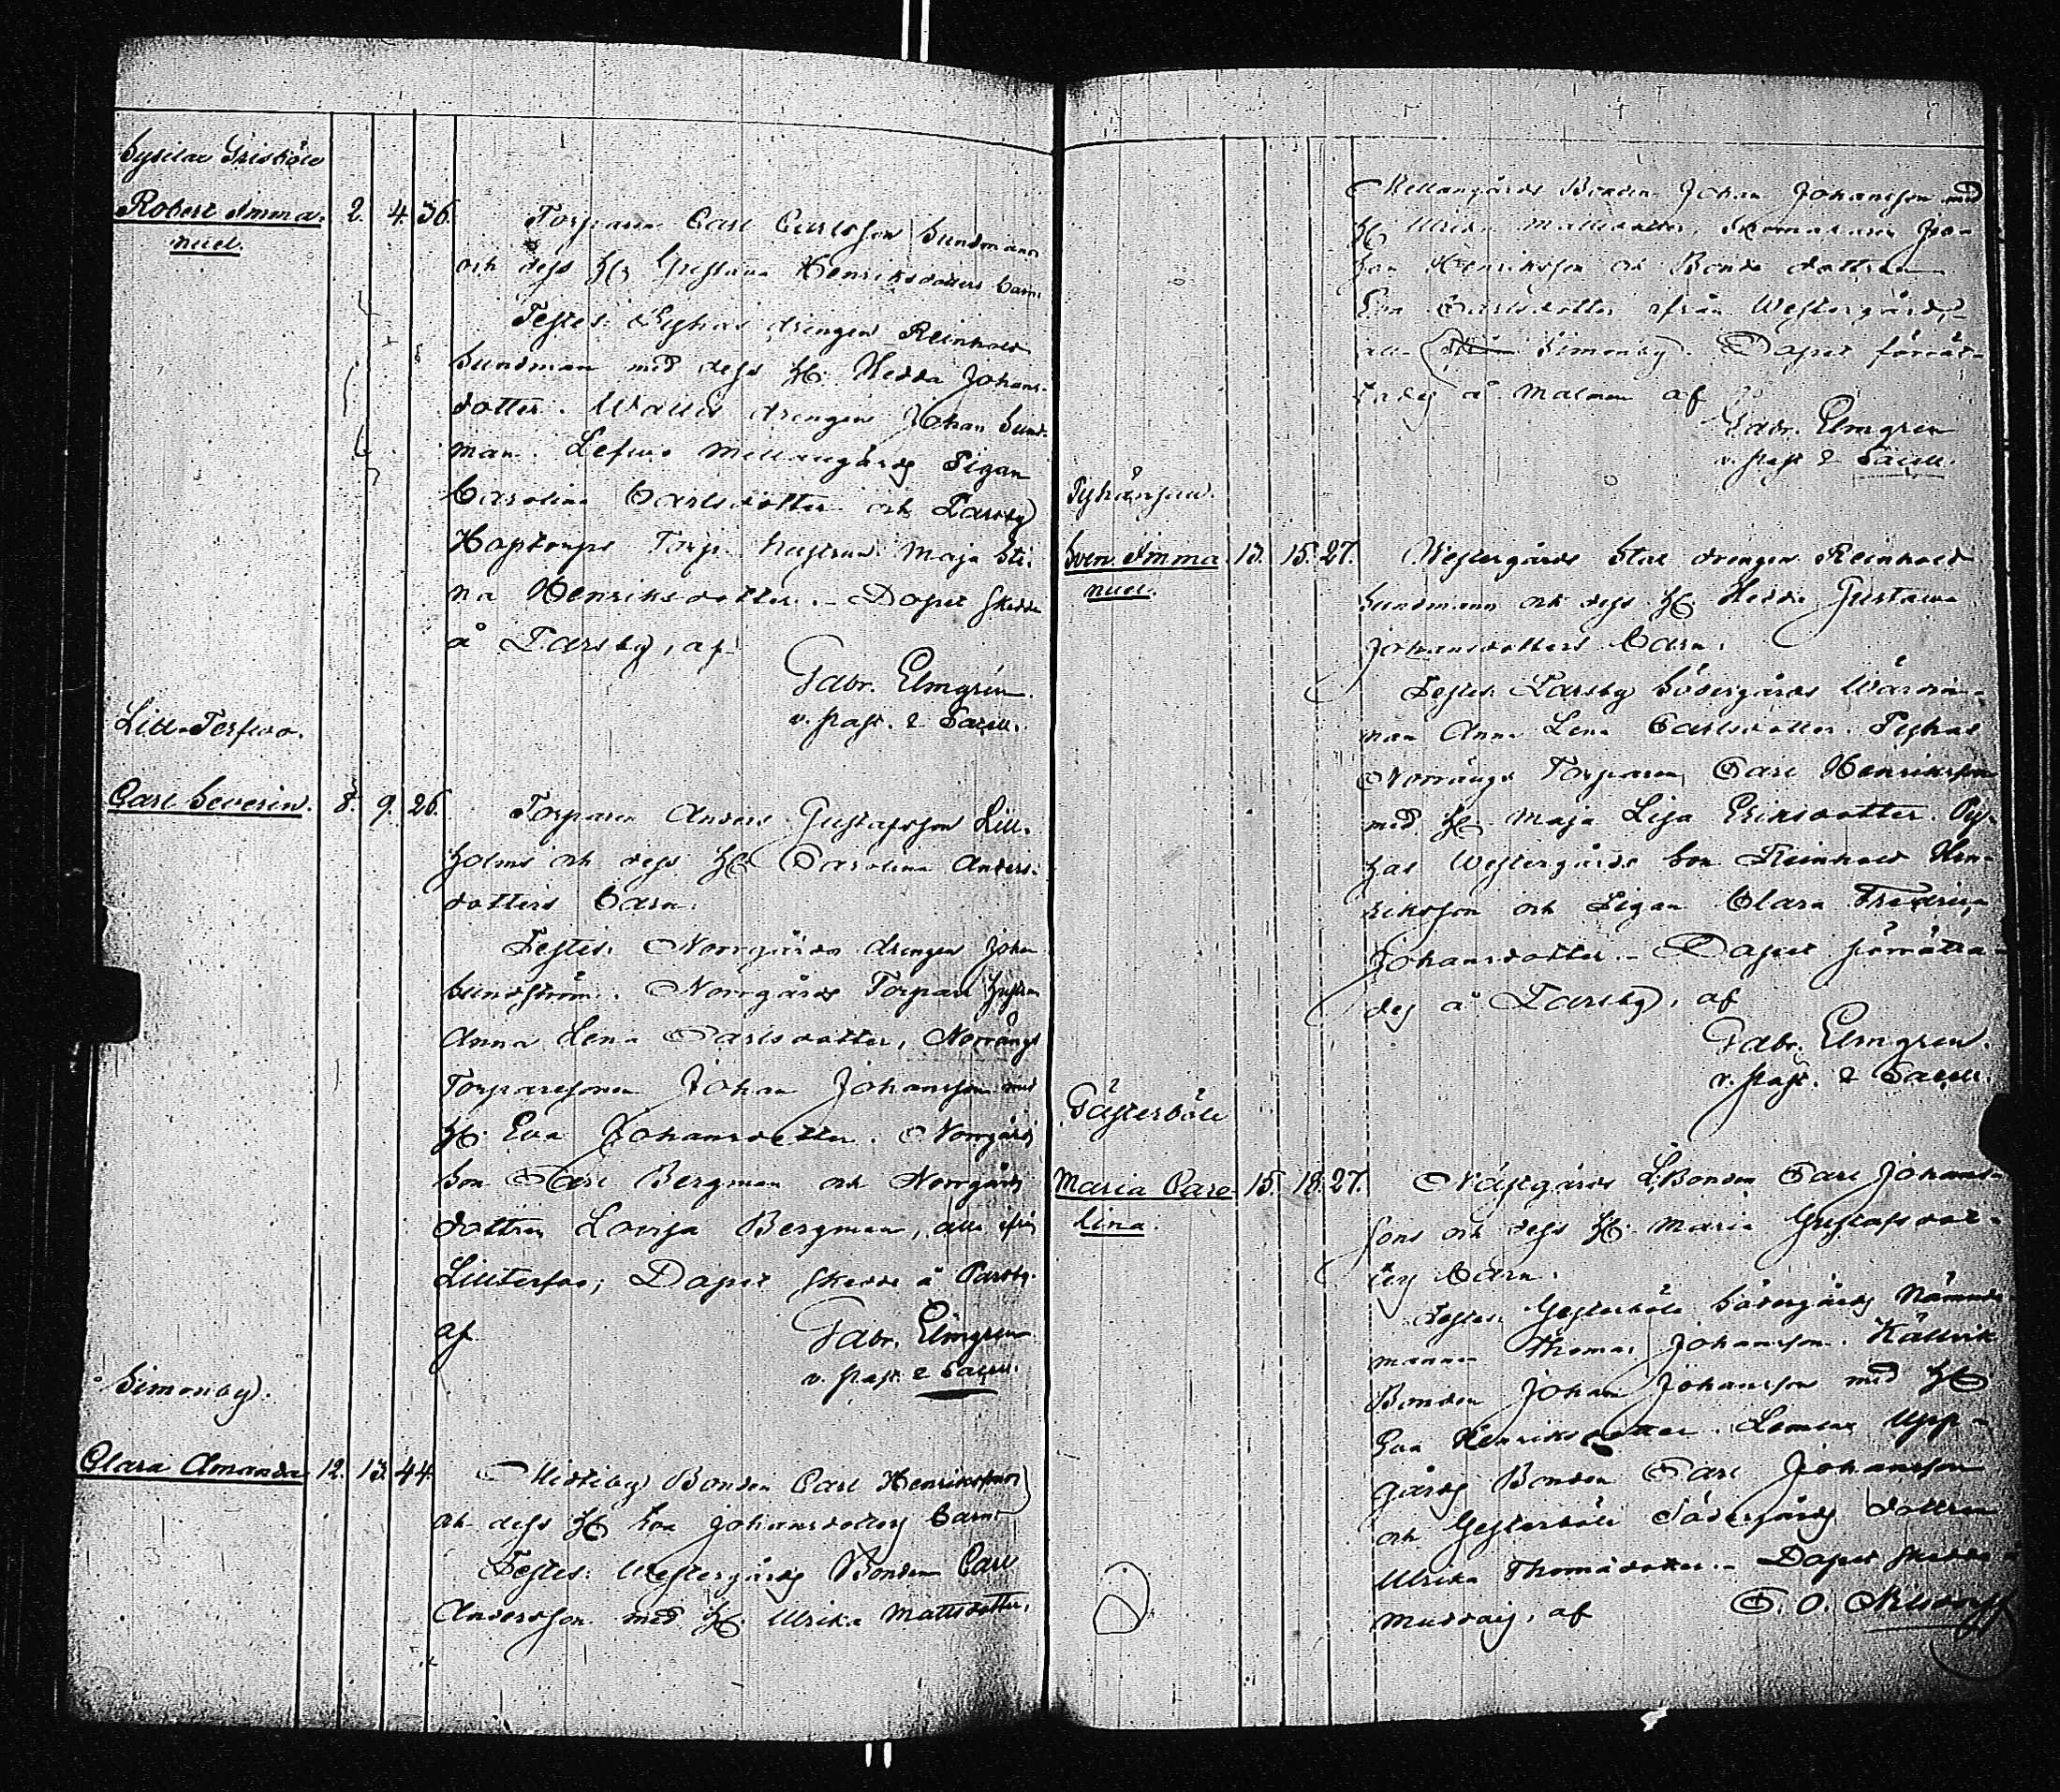 Robert Imma-
nuel.
2. 4. 36.
Torparen Carl Carlsson Sundmans
och dess H. Henriksdotters barn.
Testes: drengen Reinhold
Sundman med dess H. Hedda Johans-
dotter. drengen Johan Sund-
man. Mellangårds Pigan
Carolina Carlsdotter och Tarsby
Torp. hustrun Maja Sti-
na Henriksdotter. – Dopet skedde
å Tarsby, af
Gabr. Elmgren.
v. past. & Sacell.
Lill-Terfwo.
Carl Severin. 8. 9. 26.
Torparen Anders Gustafsson Lill-
holms och dess H. Carolina Anders-
dotters barn.
Testes: Norrgårds drengen Johan
Sundström. Norrgårds Torpare hustrun
Anna Lena Carlsdotter, Norrängs
Torparesonen Johan Johansson med
H. Eva Johansdotter. Norrgårds
Son Carl Bergman och Norrgårds
dottren Lovisa Bergman, alla ifrån
Lillterfvo; Dopet skedde å Tarsby.
af
Gabr. Elmgren
v. past. & Sacell.
Simonby.
Clara Amanda 12. 13. 44.
Bonden Carl Henrikssons
och dess H. Eva Johansdotters barn.
Testes: Westergårds Bonden Carl
Andersson med H. Ulrika Mattsdotter,
Mellangårds Bonden Johan Johansson med
H. Ulrika Mattsdotter, Jo-
han Henriksson och Bonde dottren
Eva Carlsdotter ifrån Westergård,
alla Simonby). Dopet förrät-
tades å Malmen af
Gabr. Elmgren
v. past. & Sacell.
Sven Imma-
nuel.
13. 15. 27.
Westergårds Stat drengen Reinhold
Sundmans och dess H. Hedda Gustava
Johansdotters barn.
Testes: Tarsby Södergårds
Anna Lena Carlsdotter.
Norrängs Torparen Carl Henriksson
med H. Maja Lisa Eriksdotter. Pyt-
has Westergårds Son Reinhold Hen-
riksson och Pigan Clara Fredrica
Johansdotter. – Dopet förrätta-
des å Tarsby, af
Gabr. Elmgren.
v. past. & Sacell.
Gästerböle
Maria Caro-
lina.
15. 18. 27.
Nästgårds Bonden Carl Johans-
sons och dess H. Maria Gustafsdot-
ters barn.
Testes: Gesterböle Södergårds Nämnde-
mannen Thomas Johansson. Källvik
Bonden Johan Johansson med H.
Eva Henriksdotter. Upp-
gårds Bonden Carl Johansson
och Gesterböle Södergårds dottren
Ulrika Thomasdotter. – Dopet skedde
af